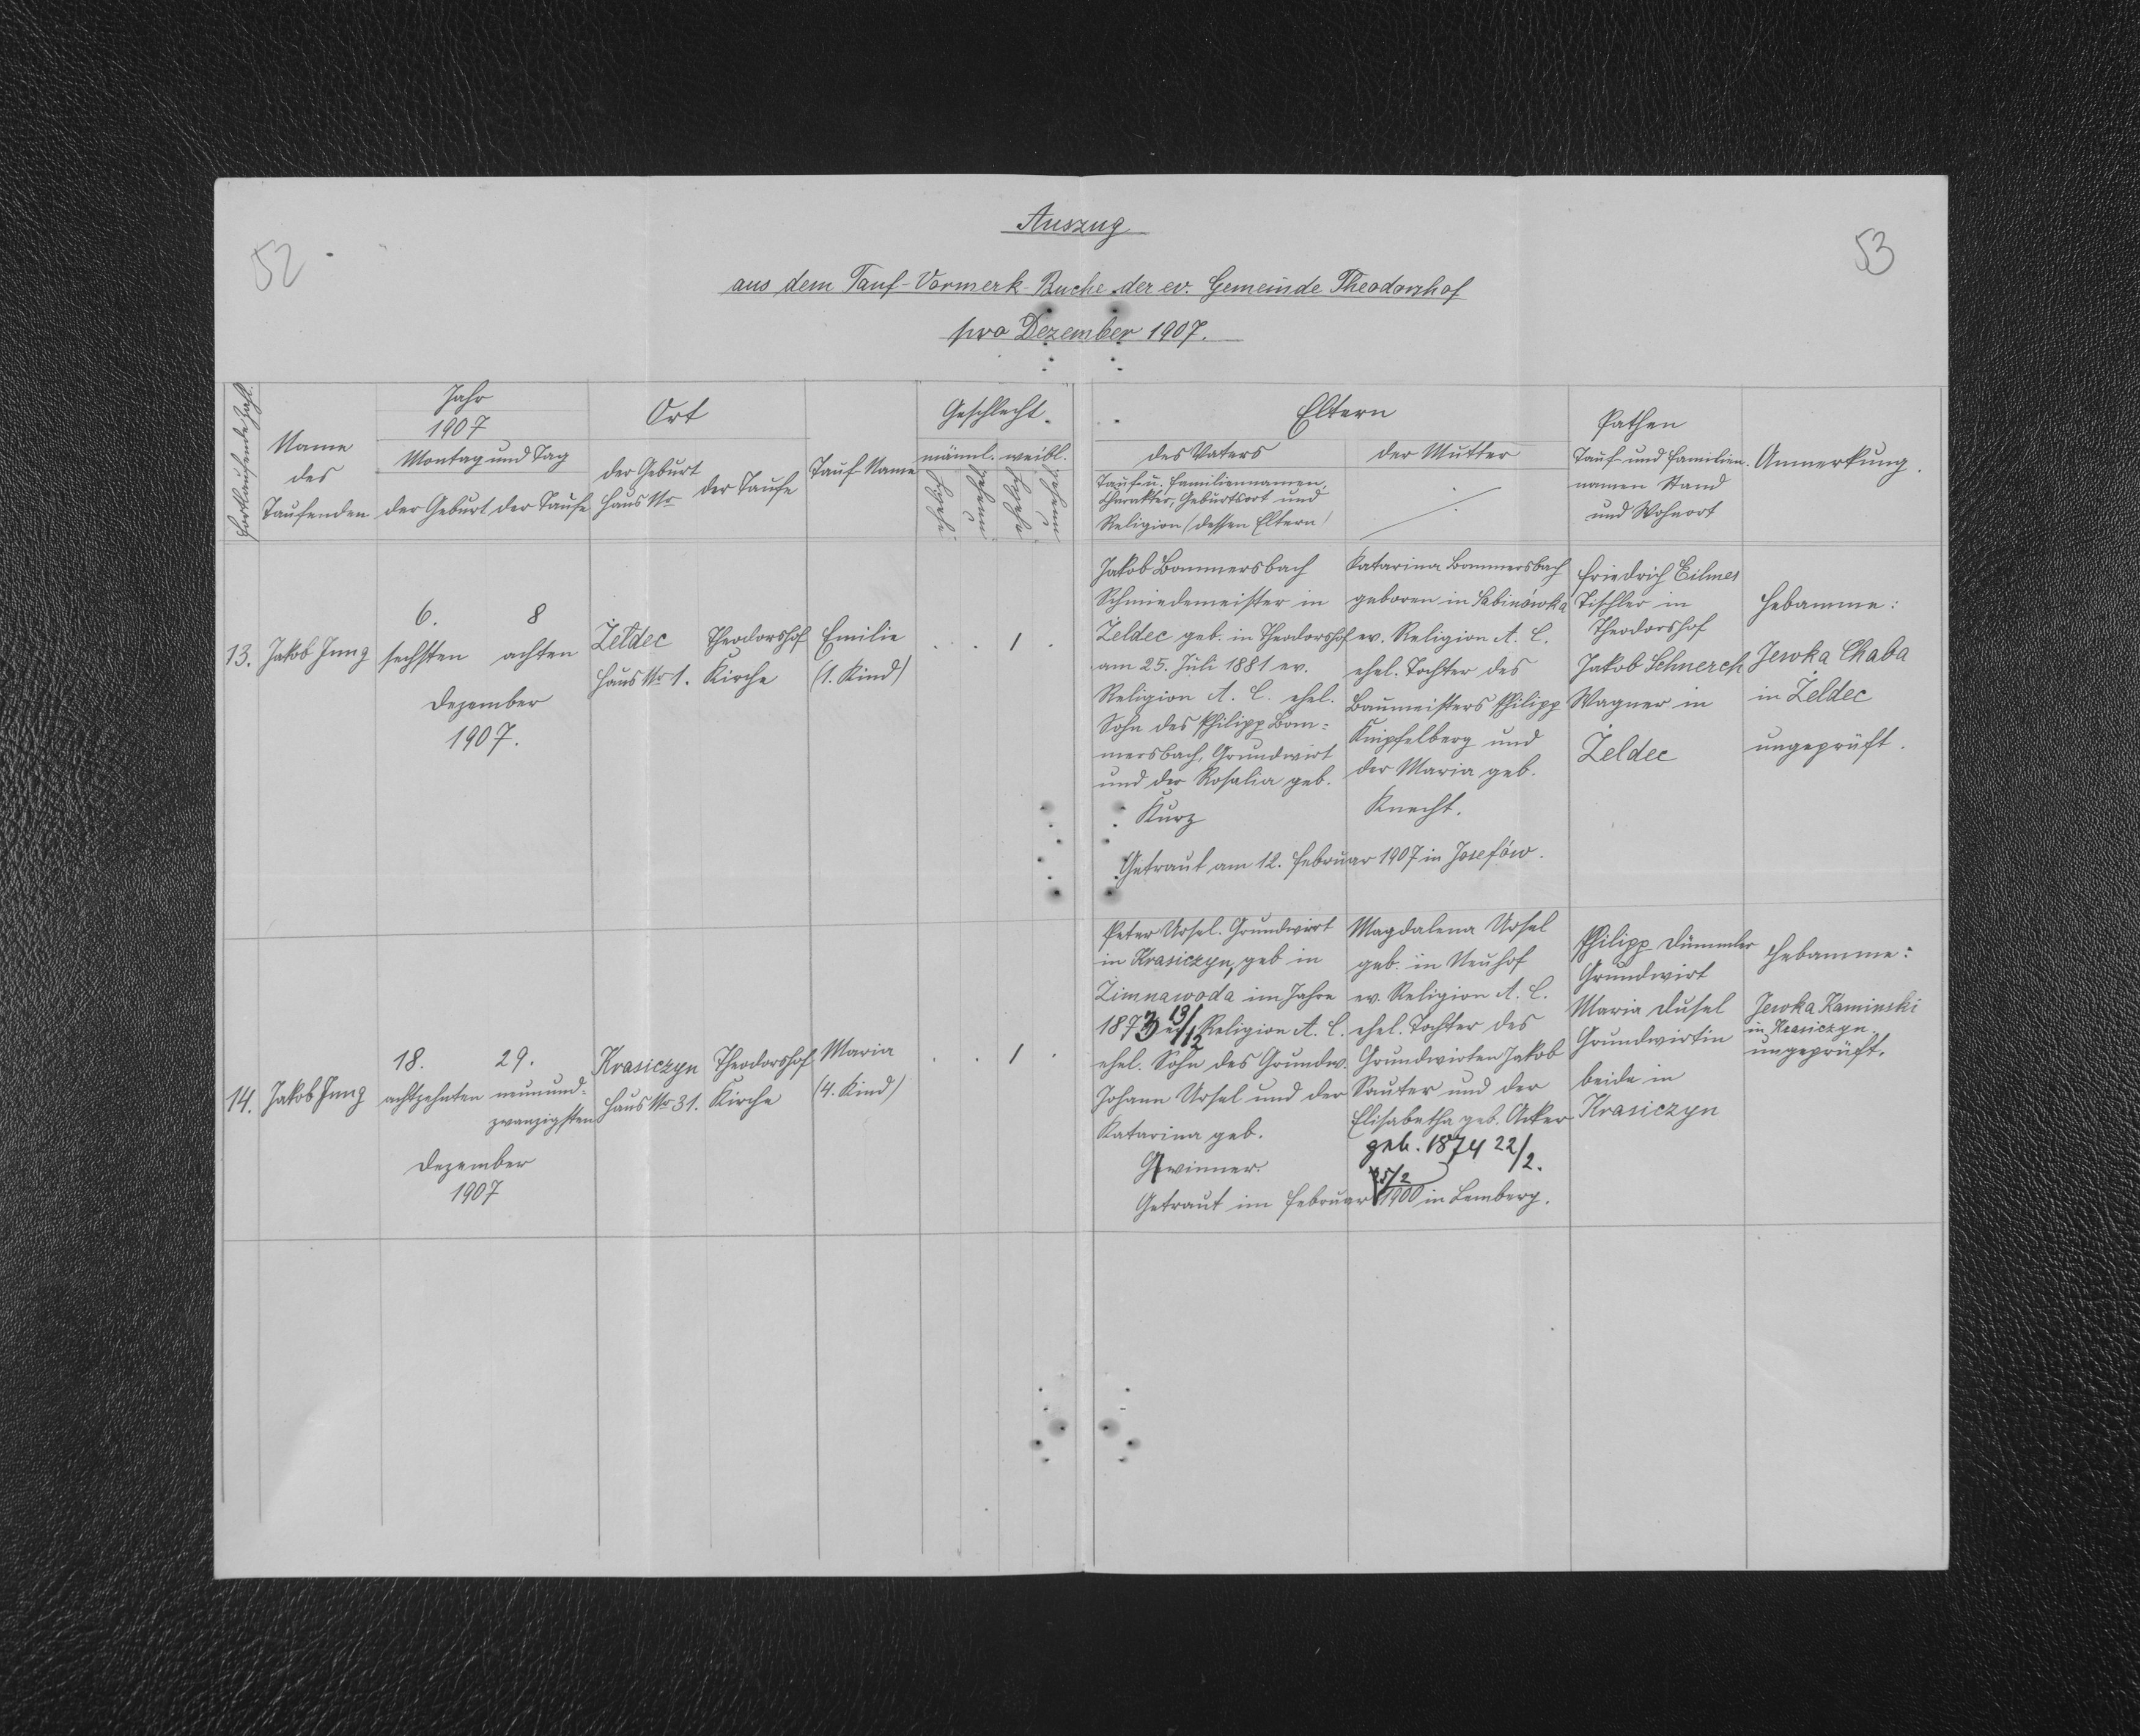 Auszug
52
53
aus dem Tauf-Vormerk-Buche der ev. Gemeinde Theodorshof
pro Dezember 1907.
Fortlaufende Zahl.
Name
des
Taufenden
Jahr
1907
Montag und Tag
der Geburt
der Taufe
Ort
der Geburt
Haus Nr
der Taufe
Tauf Name
Geschlecht.
männl. weibl.
ehelich
unehel.
ehelich
unehel.
Eltern
des Vaters
Tauf u. Familiennamen,
Charakter, Geburtsort und
Religion (dessen Eltern)
der Mutter
Pathen
Tauf- und Familien-
namen Stand
und Wohnort
Anmerkung.
13.
Jakob Jung
6.
sechsten
8
achten
Dezember
1907.
Żeldec
Haus Nr 1.
Theodorshof
Kirche
Emilie
(1. Kind)
. . 1 .
Jakob Bommersbach
Schmiedemeister in
Żeldec geb. in Theodorshof
am 25. Juli 1881 ev.
Religion A. C. ehel.
Sohn des Philipp Bom=
mersbach, Grundwirt
und der Rosalia geb.
Kurz
Katarina Bommersbach
geboren in Sabinówka
ev. Religion A. C.
ehel. Tochter des
Baumeisters Philipp
Knipfelberg und
der Maria geb.
Knecht.
Getraut am 12. Februar 1907 in Josefów.
Friedrich Eilmes
Tischler in
Theodorshof
Jakob Schnerch
Wagner in
Żeldec
Hebamme:
Jewka Chaba
in Żeldec
ungeprüft.
14.
Jakob Jung
18.
achtzehnten
29.
neunund-
zwanzigsten
Dezember
1907
Krasiczyn
Haus Nr 31.
Theodorshof
Kirche
Maria
(4. Kind)
. . 1 .
Peter Ursel. Grundwirt
in Krasiczyn, geb in
Zimnawoda im Jahre
1873 13/12 Religion A. C.
ehel. Sohn des Grundw.
Johann Ursel und der
Katarina geb.
Gwinner.
Magdalena Ursel
geb. in Neuhof
ev. Religion A. C.
ehel. Tochter des
Grundwirten Jakob
Sauter und der
Elisabetha geb. Acker
geb. 1874 22/2.
5/2
Getraut im Februar 1900 in Lemberg.
Philipp Dümmler
Grundwirt
Maria Dusel
Grundwirtin
beide in
Krasiczyn
Hebamme:
Jewka Kaminski
in Krasiczyn.
ungeprüft.